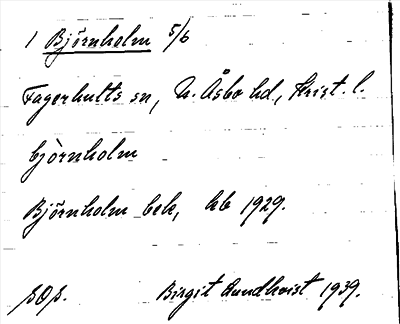 1 Björnholm 5/6
Fagerhults sn, N. Åsbo hd, Krist. l.
bjö̀rnholm
Björnholm beh, hb 1929.
Birgit Lundkvist 1939.